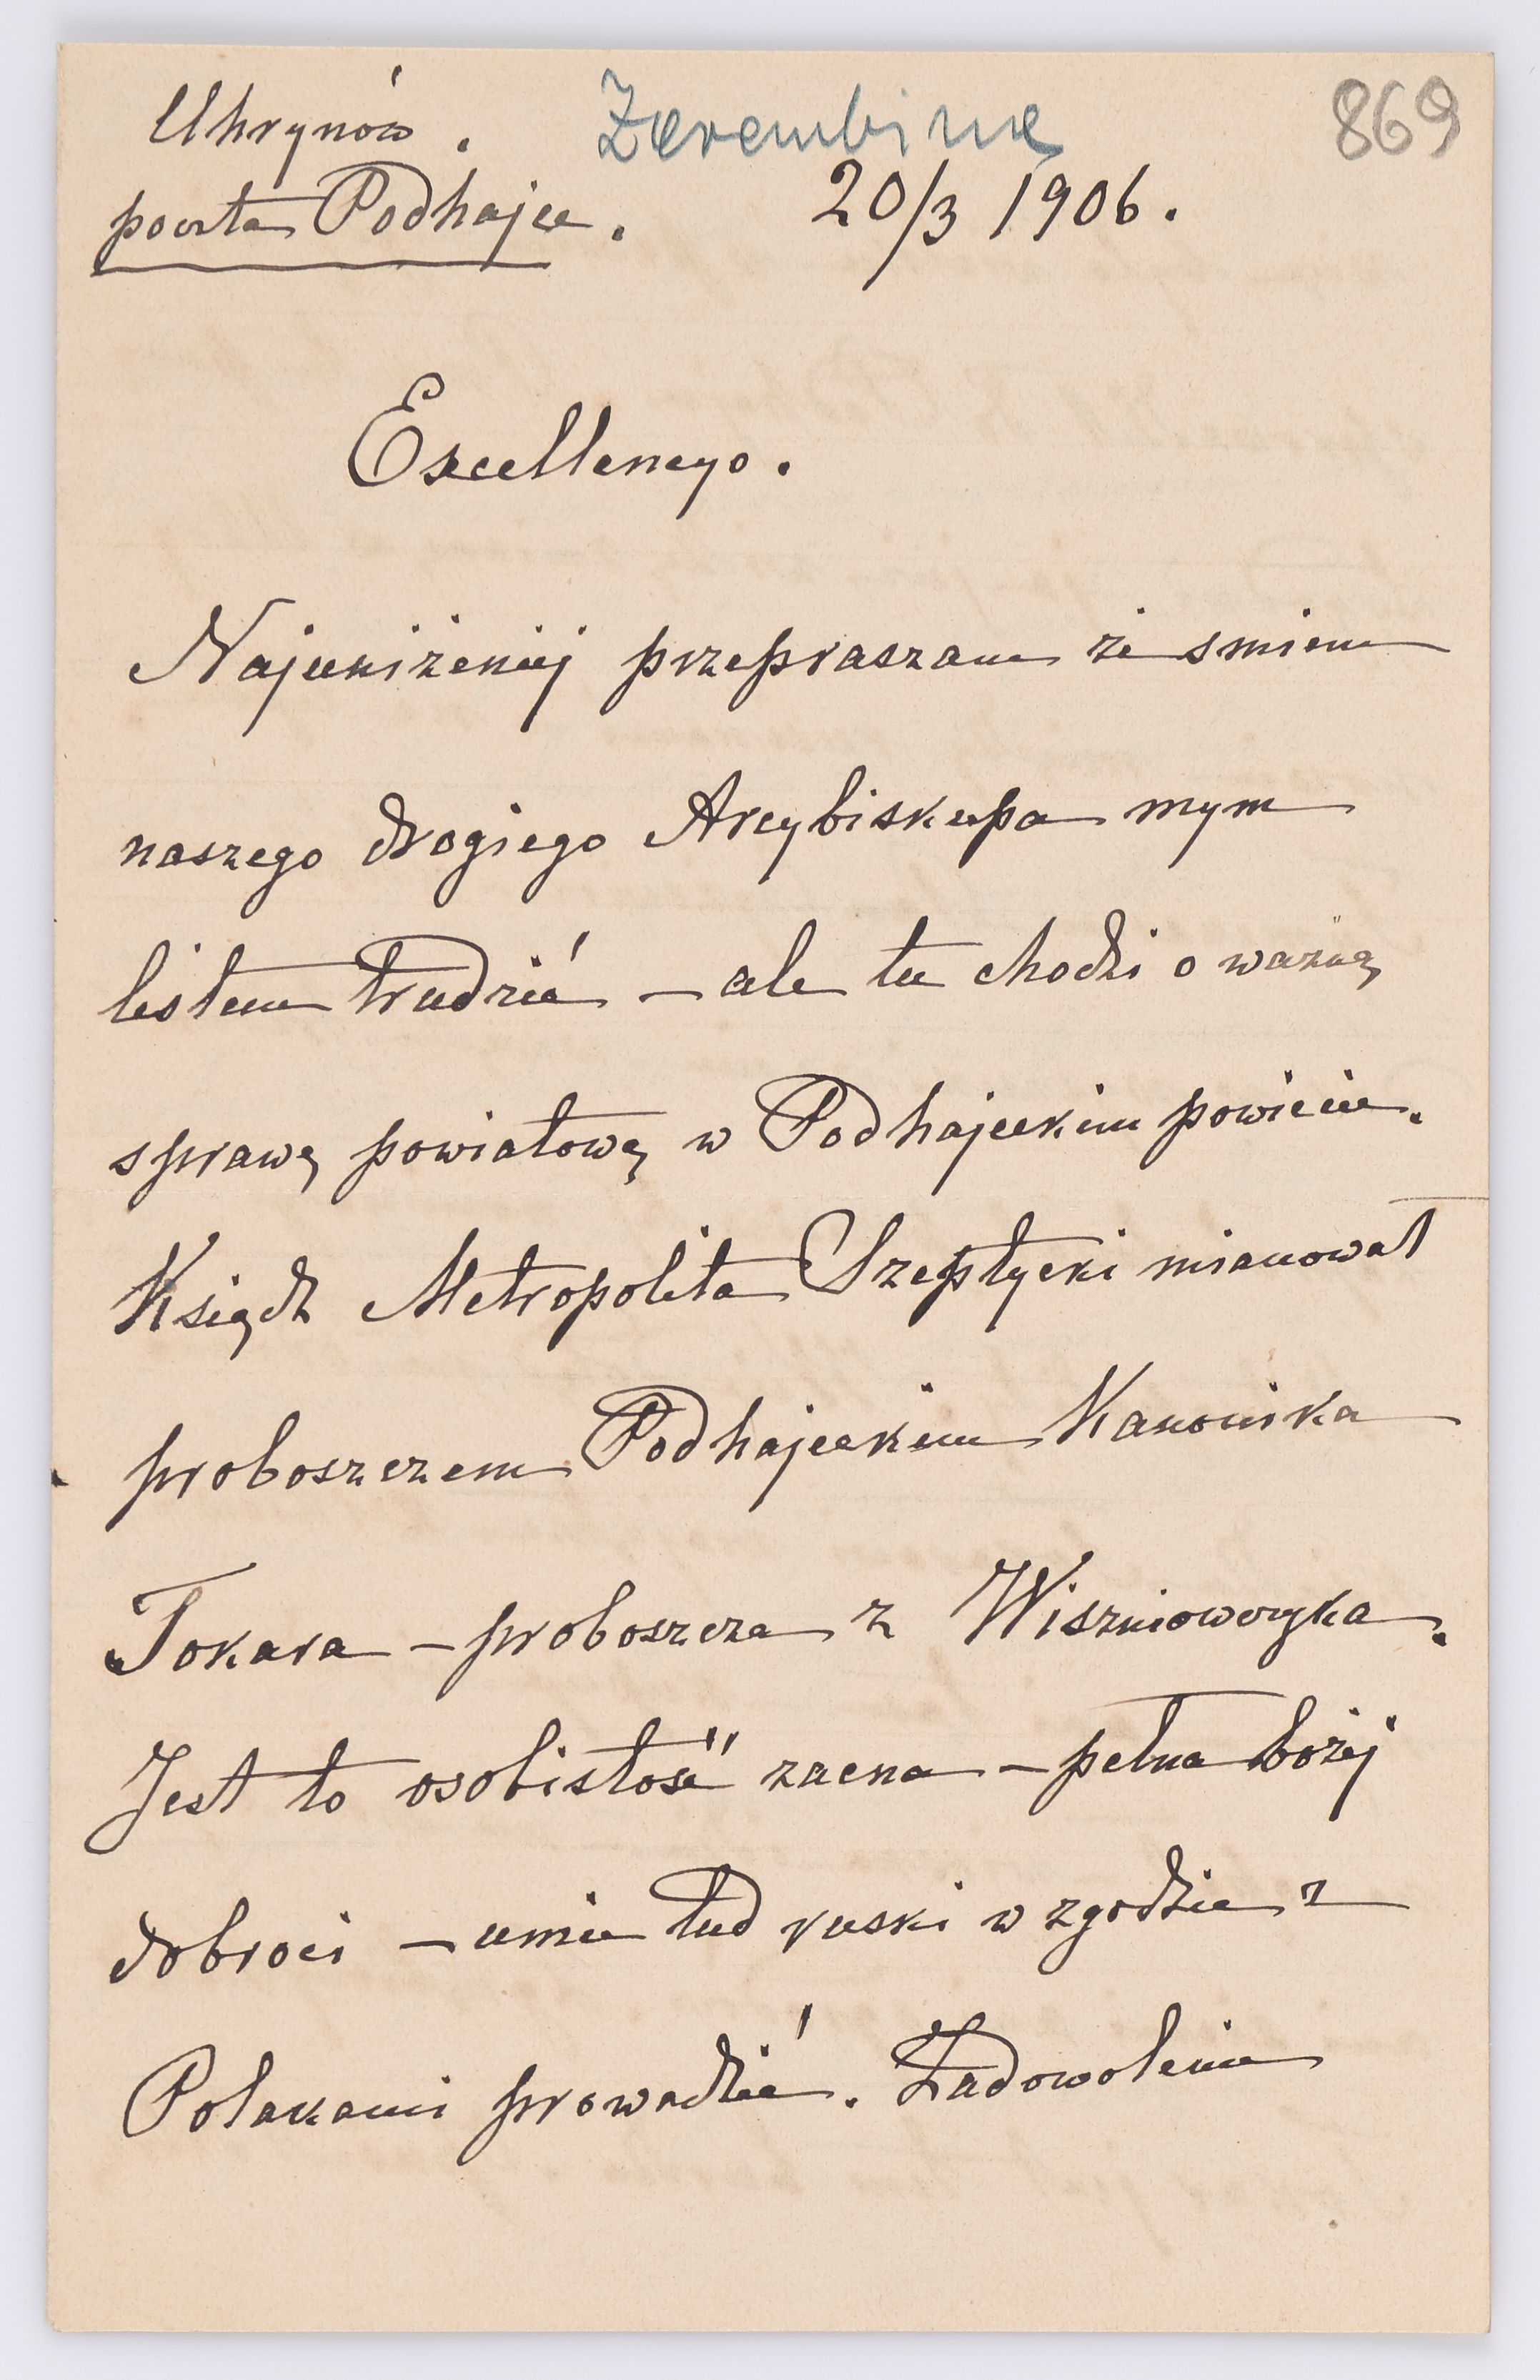 Uhrynów. Zarembina 869
poczta Podhajce. 20/3 1906.
Excellencyo.
Najuniżeniej przepraszam że smiem
naszego drogiego Arcybiskupa mym
listem trudzić – ale tu chodzi o ważną
sprawę powiatową w Podhajeckim powiecie.
Ksiądz Metropolita Szeptycki mianował
proboszczem Podhajeckim Kanonika
Tokara – proboszcza z Wiszniowczyka.
Jest to osobistość zacna – pełna bożej
dobroci – umie lud ruski w zgodzie z
Polakami prowadzić. Zadowolenie